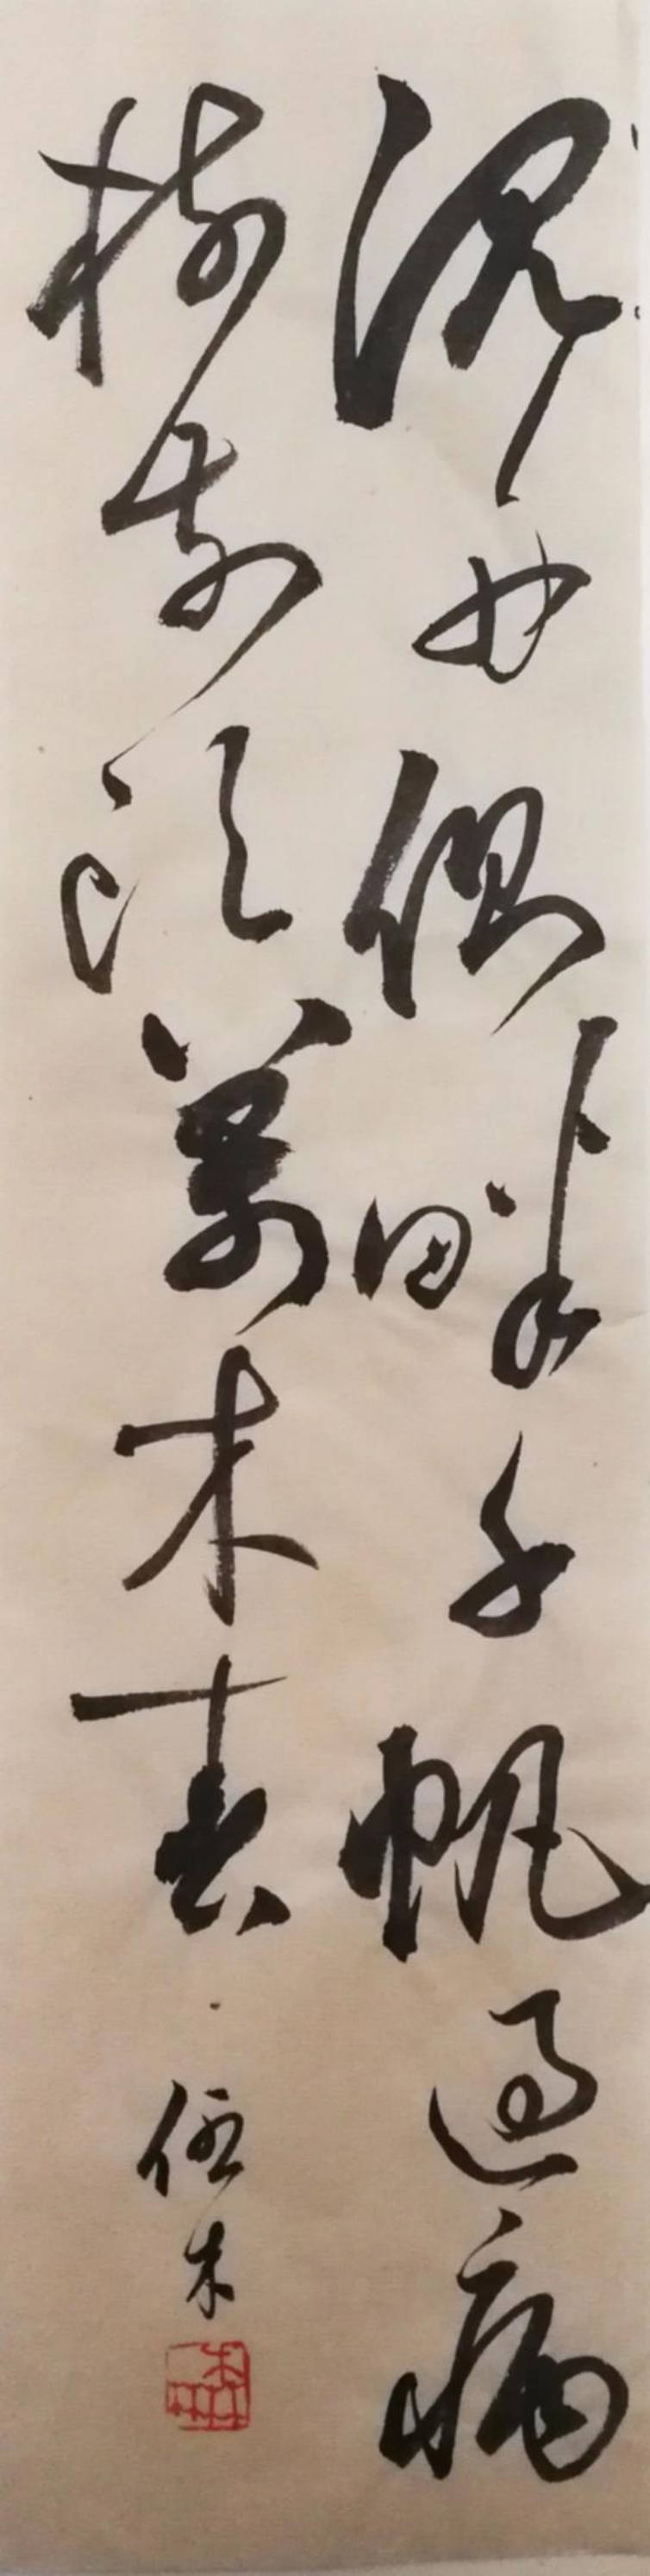 沉舟側畔千帆過病
樹前頭萬木春
木